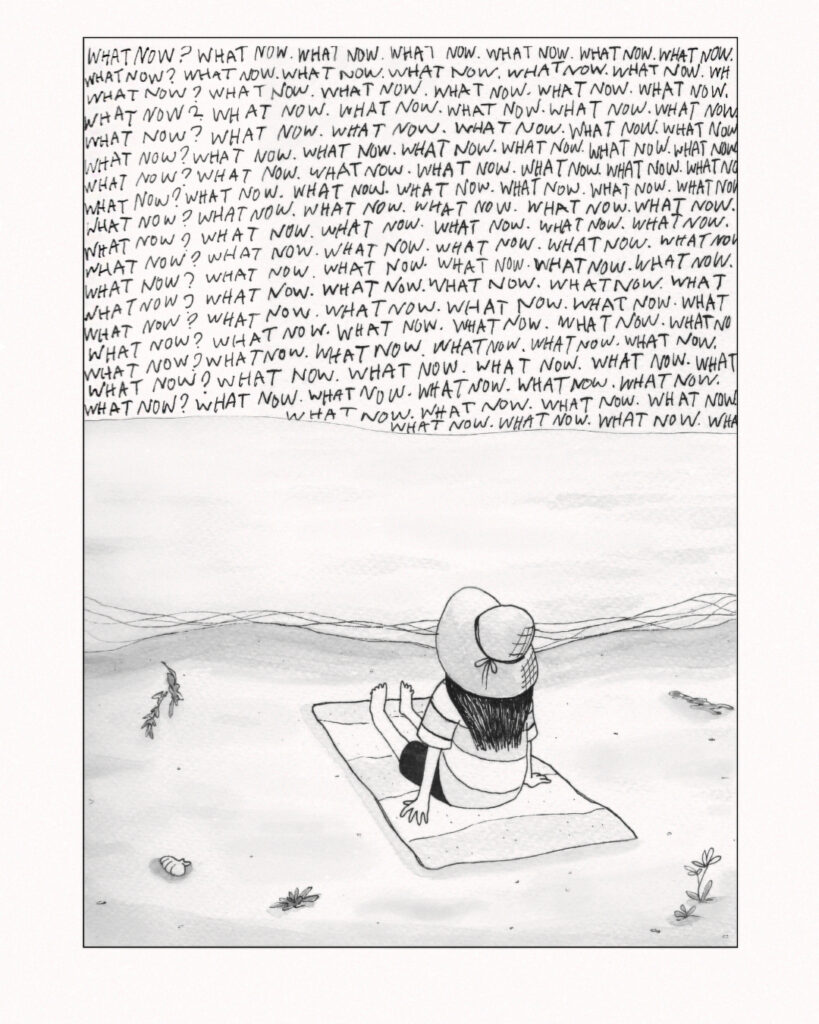 WHAT NOW? WHAT NOW. WHAT NOW. WHAT NOW. WHAT NOW. WHAT NOW. WHAT NOW.
WHAT NOW? WHAT NOW. WHAT NOW. WHAT NOW. WHAT NOW. WHAT NOW. WH
WHAT NOW? WHAT NOW. WHAT NOW. WHAT NOW. WHAT NOW. WHAT NOW.
WHAT NOW? WHAT NOW. WHAT NOW. WHAT NOW. WHAT NOW. WHAT NOW
WHAT NOW? WHAT NOW. WHAT NOW. WHAT NOW. WHAT NOW. WHAT NOW
WHAT NOW? WHAT NOW. WHAT NOW. WHAT NOW. WHAT NOW. WHAT NOW. WHAT NOW
WHAT NOW? WHAT NOW. WHAT NOW. WHAT NOW. WHAT NOW. WHAT NOW. WHAT NO
WHAT NOW? WHAT NOW. WHAT NOW. WHAT NOW. WHAT NOW. WHAT NOW. WHAT NOW
WHAT NOW? WHAT NOW. WHAT NOW. WHAT NOW. WHAT NOW. WHAT NOW.
WHAT NOW? WHAT NOW. WHAT NOW. WHAT NOW. WHAT NOW. WHAT NOW.
WHAT NOW? WHAT NOW. WHAT NOW. WHAT NOW. WHAT NOW. WHAT NOW
WHAT NOW? WHAT NOW. WHAT NOW. WHAT NOW. WHAT NOW. WHAT NOW.
WHAT NOW? WHAT NOW. WHAT NOW. WHAT NOW. WHAT NOW. WHAT
WHAT NOW? WHAT NOW. WHAT NOW. WHAT NOW. WHAT NOW. WHAT
WHAT NOW? WHAT NOW. WHAT NOW. WHAT NOW. WHAT NOW. WHAT NO
WHAT NOW? WHAT NOW. WHAT NOW. WHAT NOW. WHAT NOW. WHAT NOW.
WHAT NOW? WHAT NOW. WHAT NOW. WHAT NOW. WHAT NOW. WHAT
WHAT NOW? WHAT NOW. WHAT NOW. WHAT NOW. WHAT NOW. WHAT NOW.
WHAT NOW? WHAT NOW. WHAT NOW. WHAT NOW. WHAT NOW. WHAT NOW
WHAT NOW. WHAT NOW. WHAT NOW. WHAT NOW.
WHAT NOW. WHAT NOW. WHAT NOW. WHA